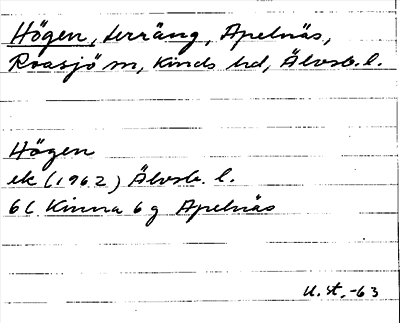 Högen, terräng, Apelnäs,
Roasjö sn, Kinds hd, Älvsb. l.
Högen
ek (1962) Älvsb. l.
6C Kinna 6g Apelnäs
U.A.-63